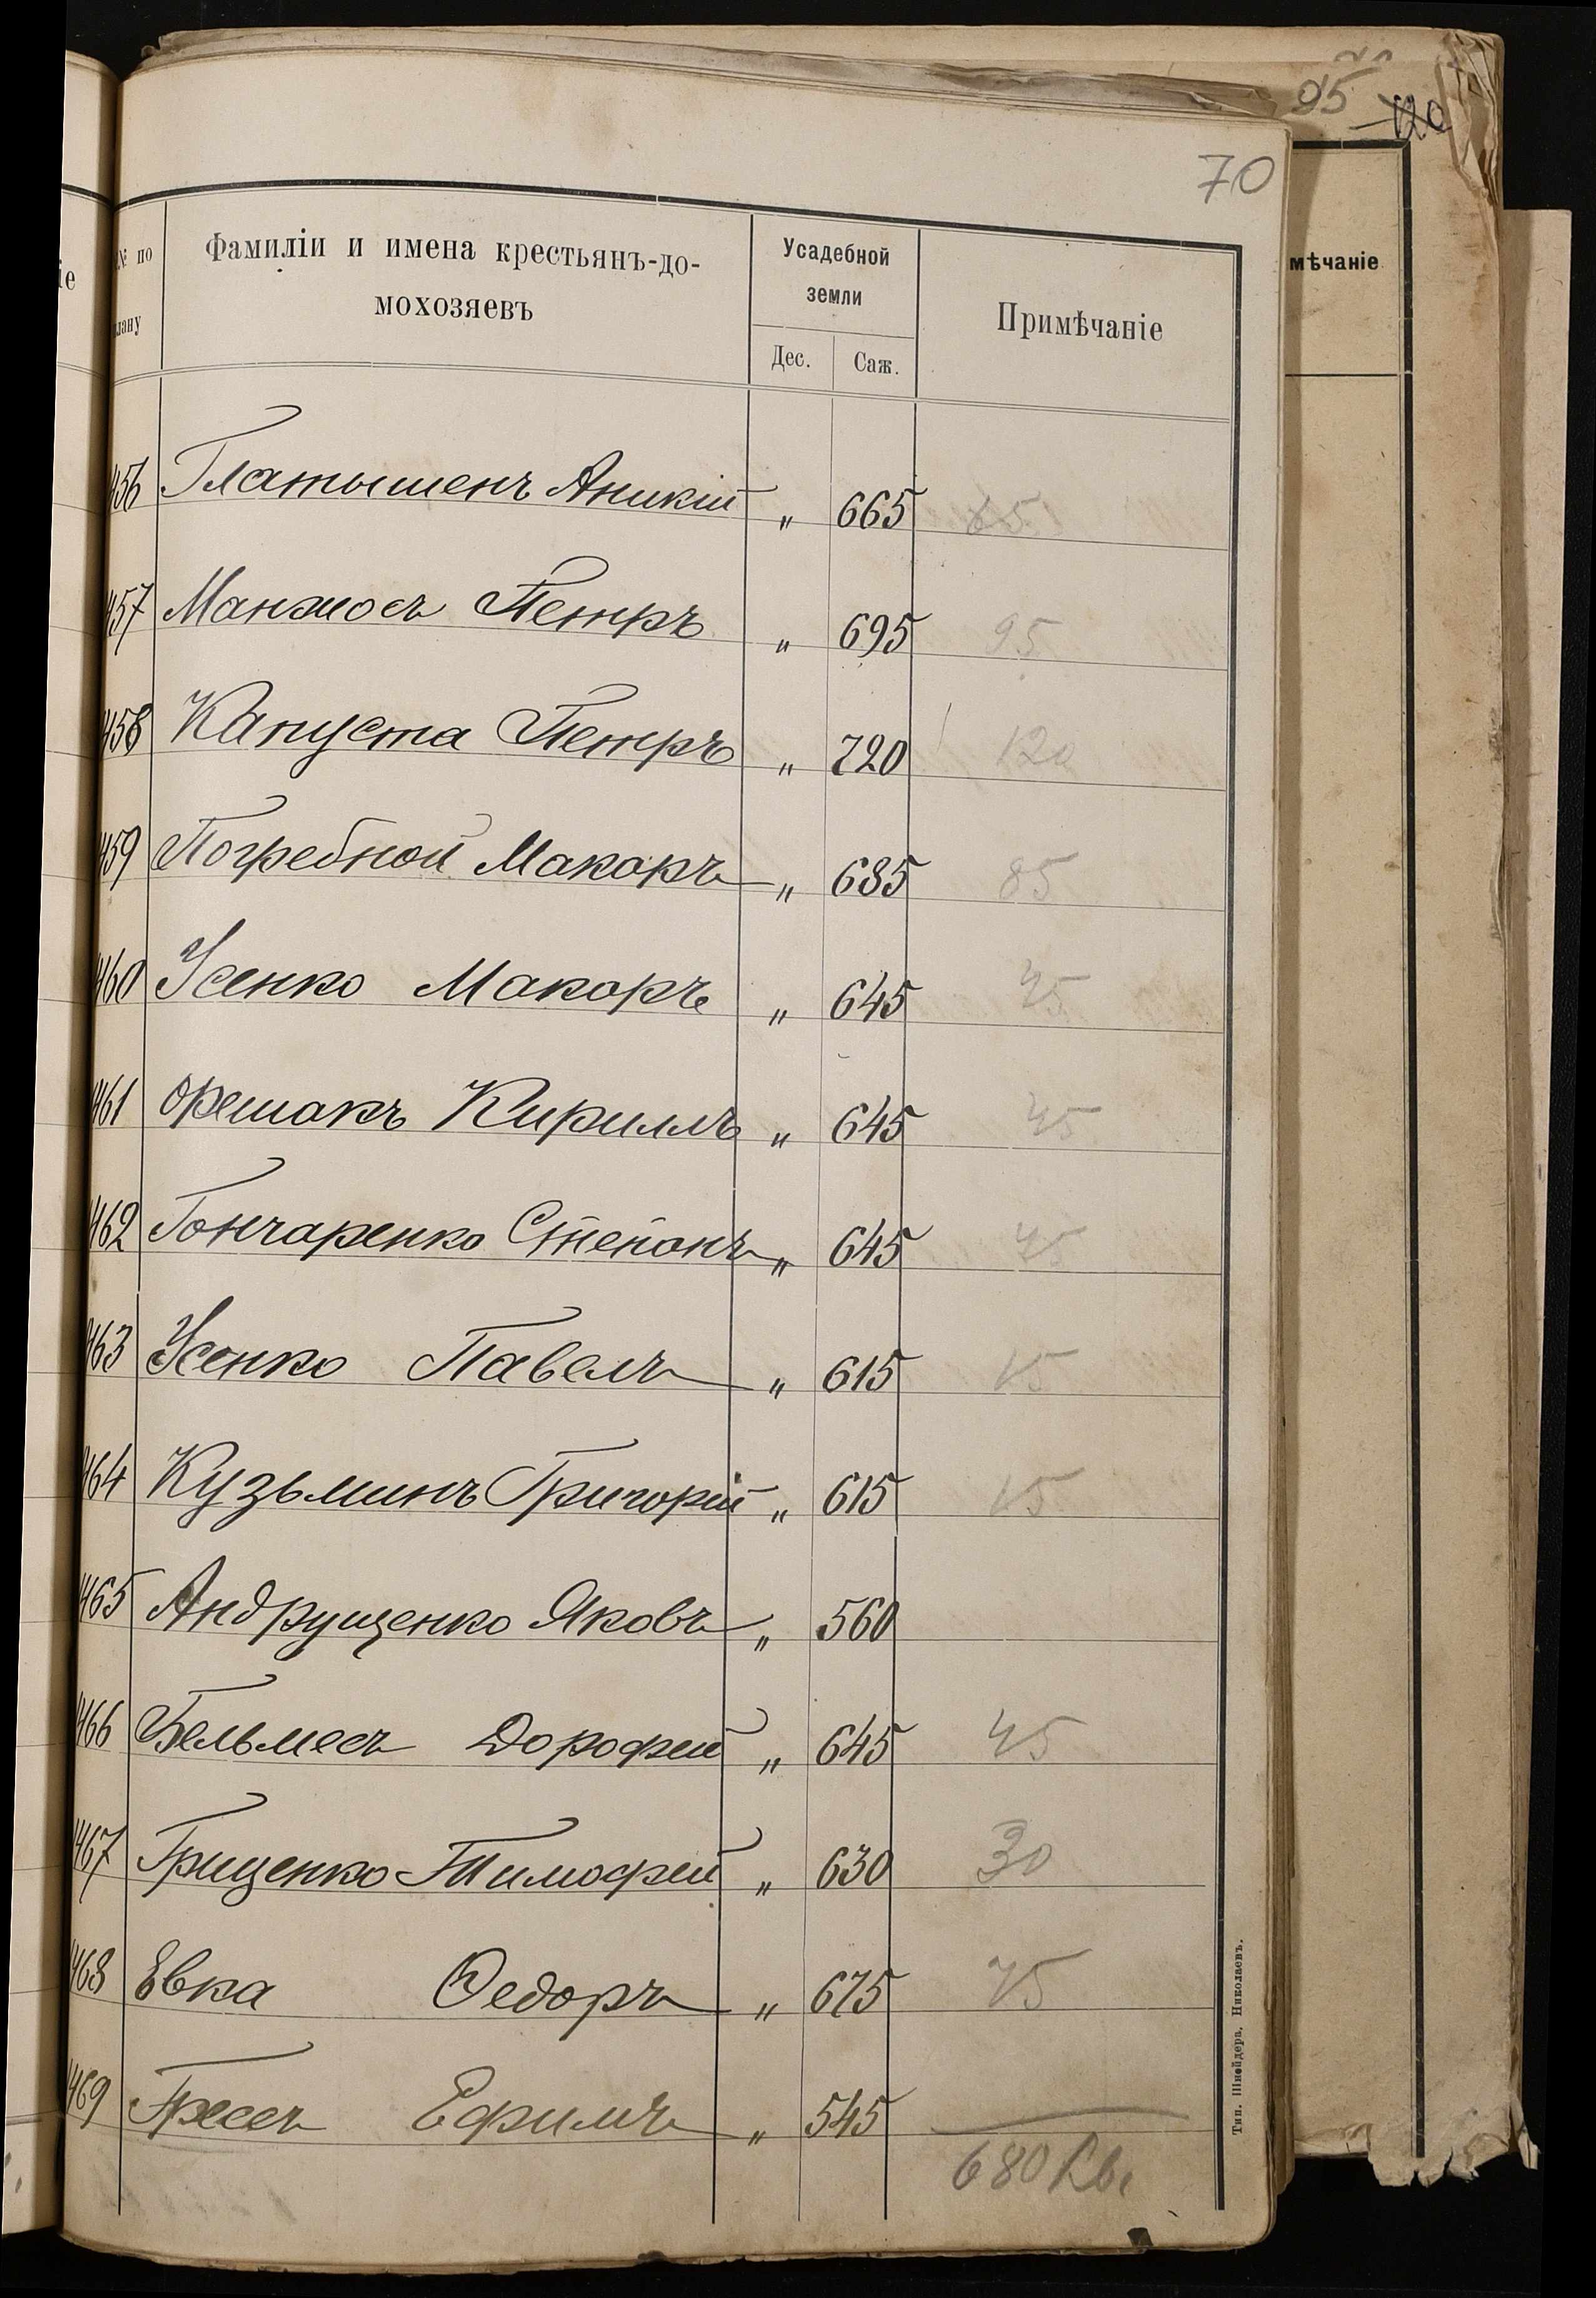 95 120
70
№ по
плану
Фамиліи и имена крестьянъ-до-
мохозяевъ
Усадебной
земли
Дес. Саж.
Примѣчаніе
мѣчаніе
іе
456 Гламышенъ Аникій " 665 65
457 Манжосъ Петръ " 695 95
458 Капуста Петръ " 720 120
459 Погребной Макаръ " 685 85
460 Усенко Макаръ " 645 45
461 Орешакъ Кириллъ " 645 45
462 Гончаренко Степанъ " 645 45
463 Усенко Павелъ " 615 15
464 Кузьминъ Григорій " 615 15
465 Андрущенко Яковъ " 560
466 Бельмесъ Дорофей " 645 45
467 Грищенко Тимофей " 630 30
468 Евка Ѳедоръ " 675 75
469 Гресъ Ефимъ " 545
680 кв.
Тип. Шнейдера, Николаевъ.